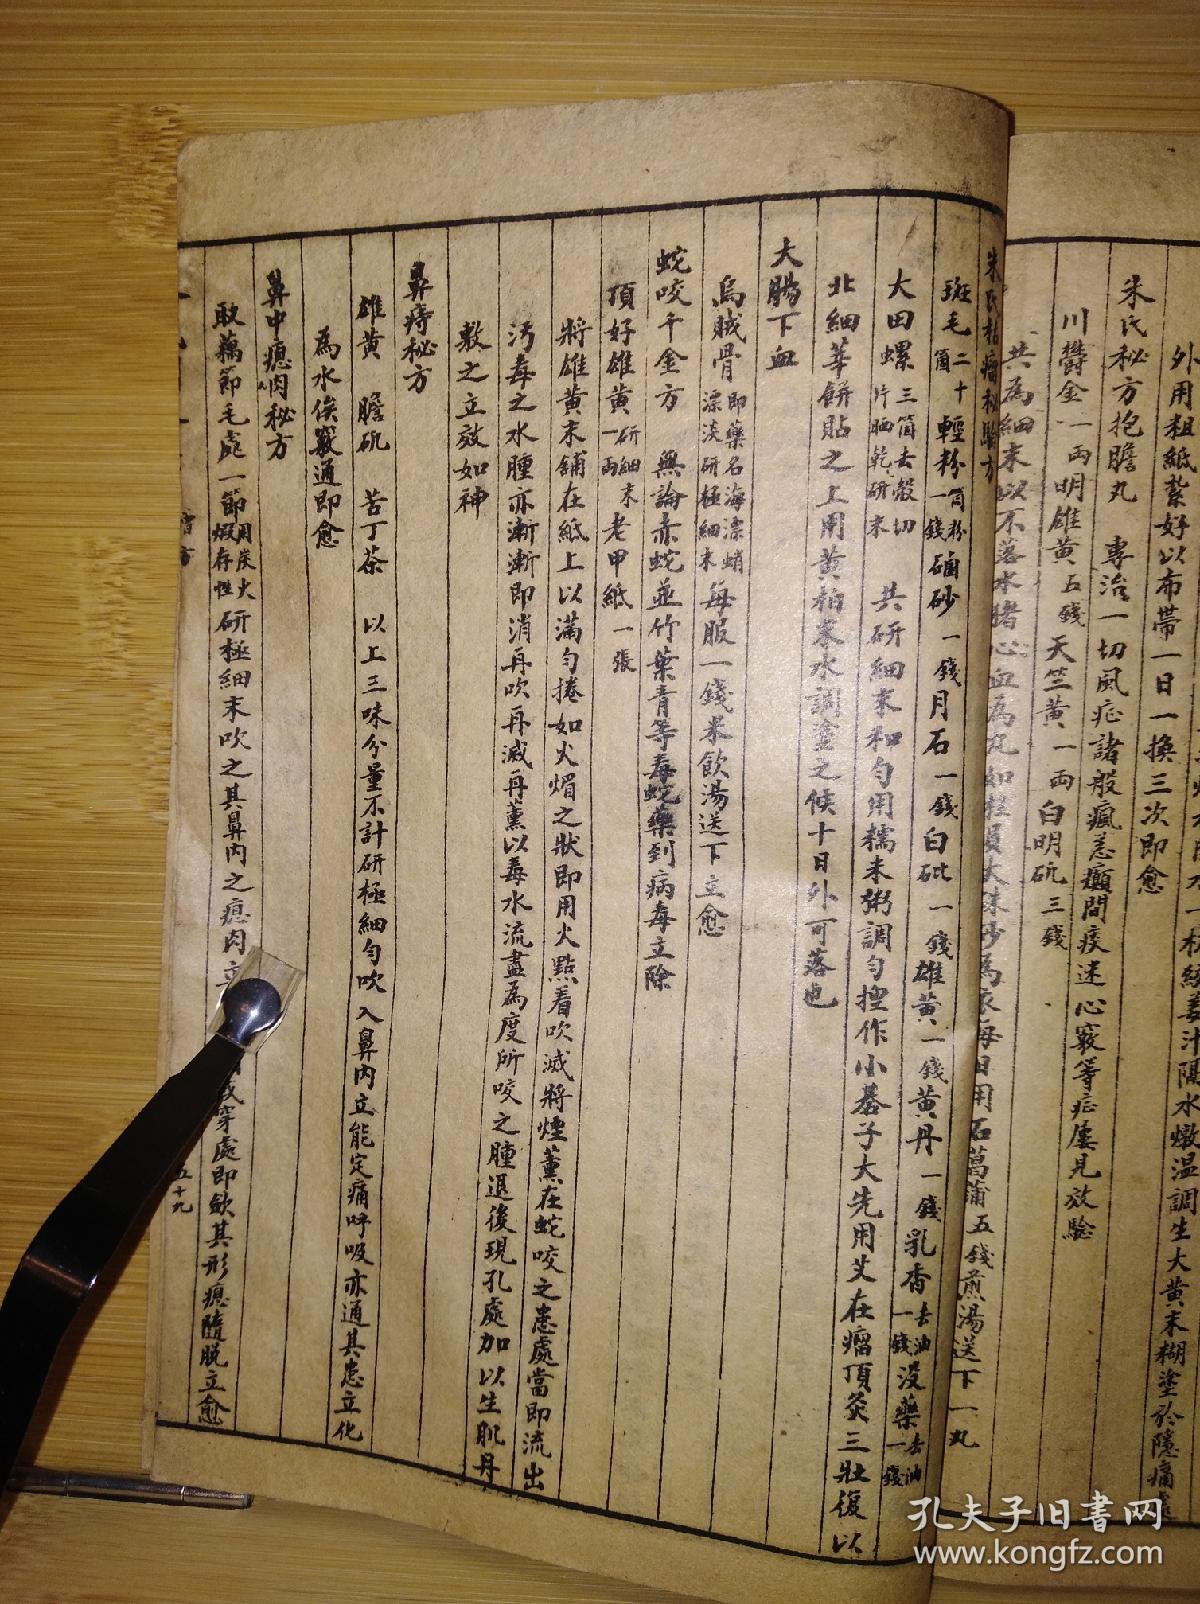 外用粗紙紮好以布帶一日一換三次即愈
朱氏秘方抱膽丸 專治一切風症諸般瘋恙癲間痰迷心竅等症屢見效驗
川鬱金一兩明雄黃五錢天竺黃一兩白明矾三錢
共為細末以不落水豬心血為丸如桂員大硃砂為衣每日用石菖蒲五錢煎湯送下一丸
朱氏枯瘤秘驗方
斑毛二十箇輕粉一錢硇砂一錢月石一錢白砒一錢雄黃一錢黃丹一錢乳香去油一錢沒藥去油一錢
大田螺三箇去殼切片晒乾研末 共研細末和勻用糯米粥調勻捏作小碁子大先用艾在瘤頂灸三壯復以
北細莘餅貼之上用黃柏末水調塗之候十日外可落也
大腸下血
烏賊骨即藥名海漂蛸漂淡研極細末每服一錢米飲湯送下立愈
蛇咬千金方 無論赤蛇並竹葉青等毒蛇藥到病毒立除
頂好雄黃一兩研細末老甲紙一張
將雄黃末鋪在紙上以滿勻捲如火煝之狀即用火點着吹滅將煙薰在蛇咬之患處當即流出
污毒之水腫亦漸漸即消再吹再滅再薰以毒水流盡為度所咬之腫退後現孔處加以生肌丹
敷之立效如神
鼻痔秘方
雄黃 膽矾 苦丁茶 以上三味分量不計研極細勻吹入鼻內立能定痛呼吸亦通其患立化
為水俟竅通即愈
鼻中瘜肉秘方
取藕節毛處一節用炭火煅存性研極細末吹之其鼻內之瘜肉立
穿處即斂其形瘜隨脫立愈
五十九
孔夫子旧书网
www.kongfz.com